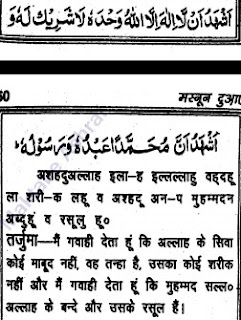 اَشْهَدُ اَنْ لَّا اِلٰهَ اِلَّا اللهُ وَحْدَهٗ لَا شَرِيْكَ لَهٗ وَ
60 मस्नून दुआएं
اَشْهَدُ اَنَّ مُحَمَّدًا عَبْدُهٗ وَرَسُوْلُهٗ
अशहदुअल्लाह इला-ह इल्लल्लाहु वह्दहू
ला शरी-क लहू व अश्हदु अन-प मुहम्मदन
अब्दुहू व रसूलु हू०
तर्जुमा—मैं गवाही देता हूं कि अल्लाह के सिवा
कोई माबूद नहीं, वह तन्हा है, उसका कोई शरीक
नहीं और मैं गवाही देता हूं कि मुहम्मद सल्ल०
अल्लाह के बन्दे और उसके रसूल हैं।